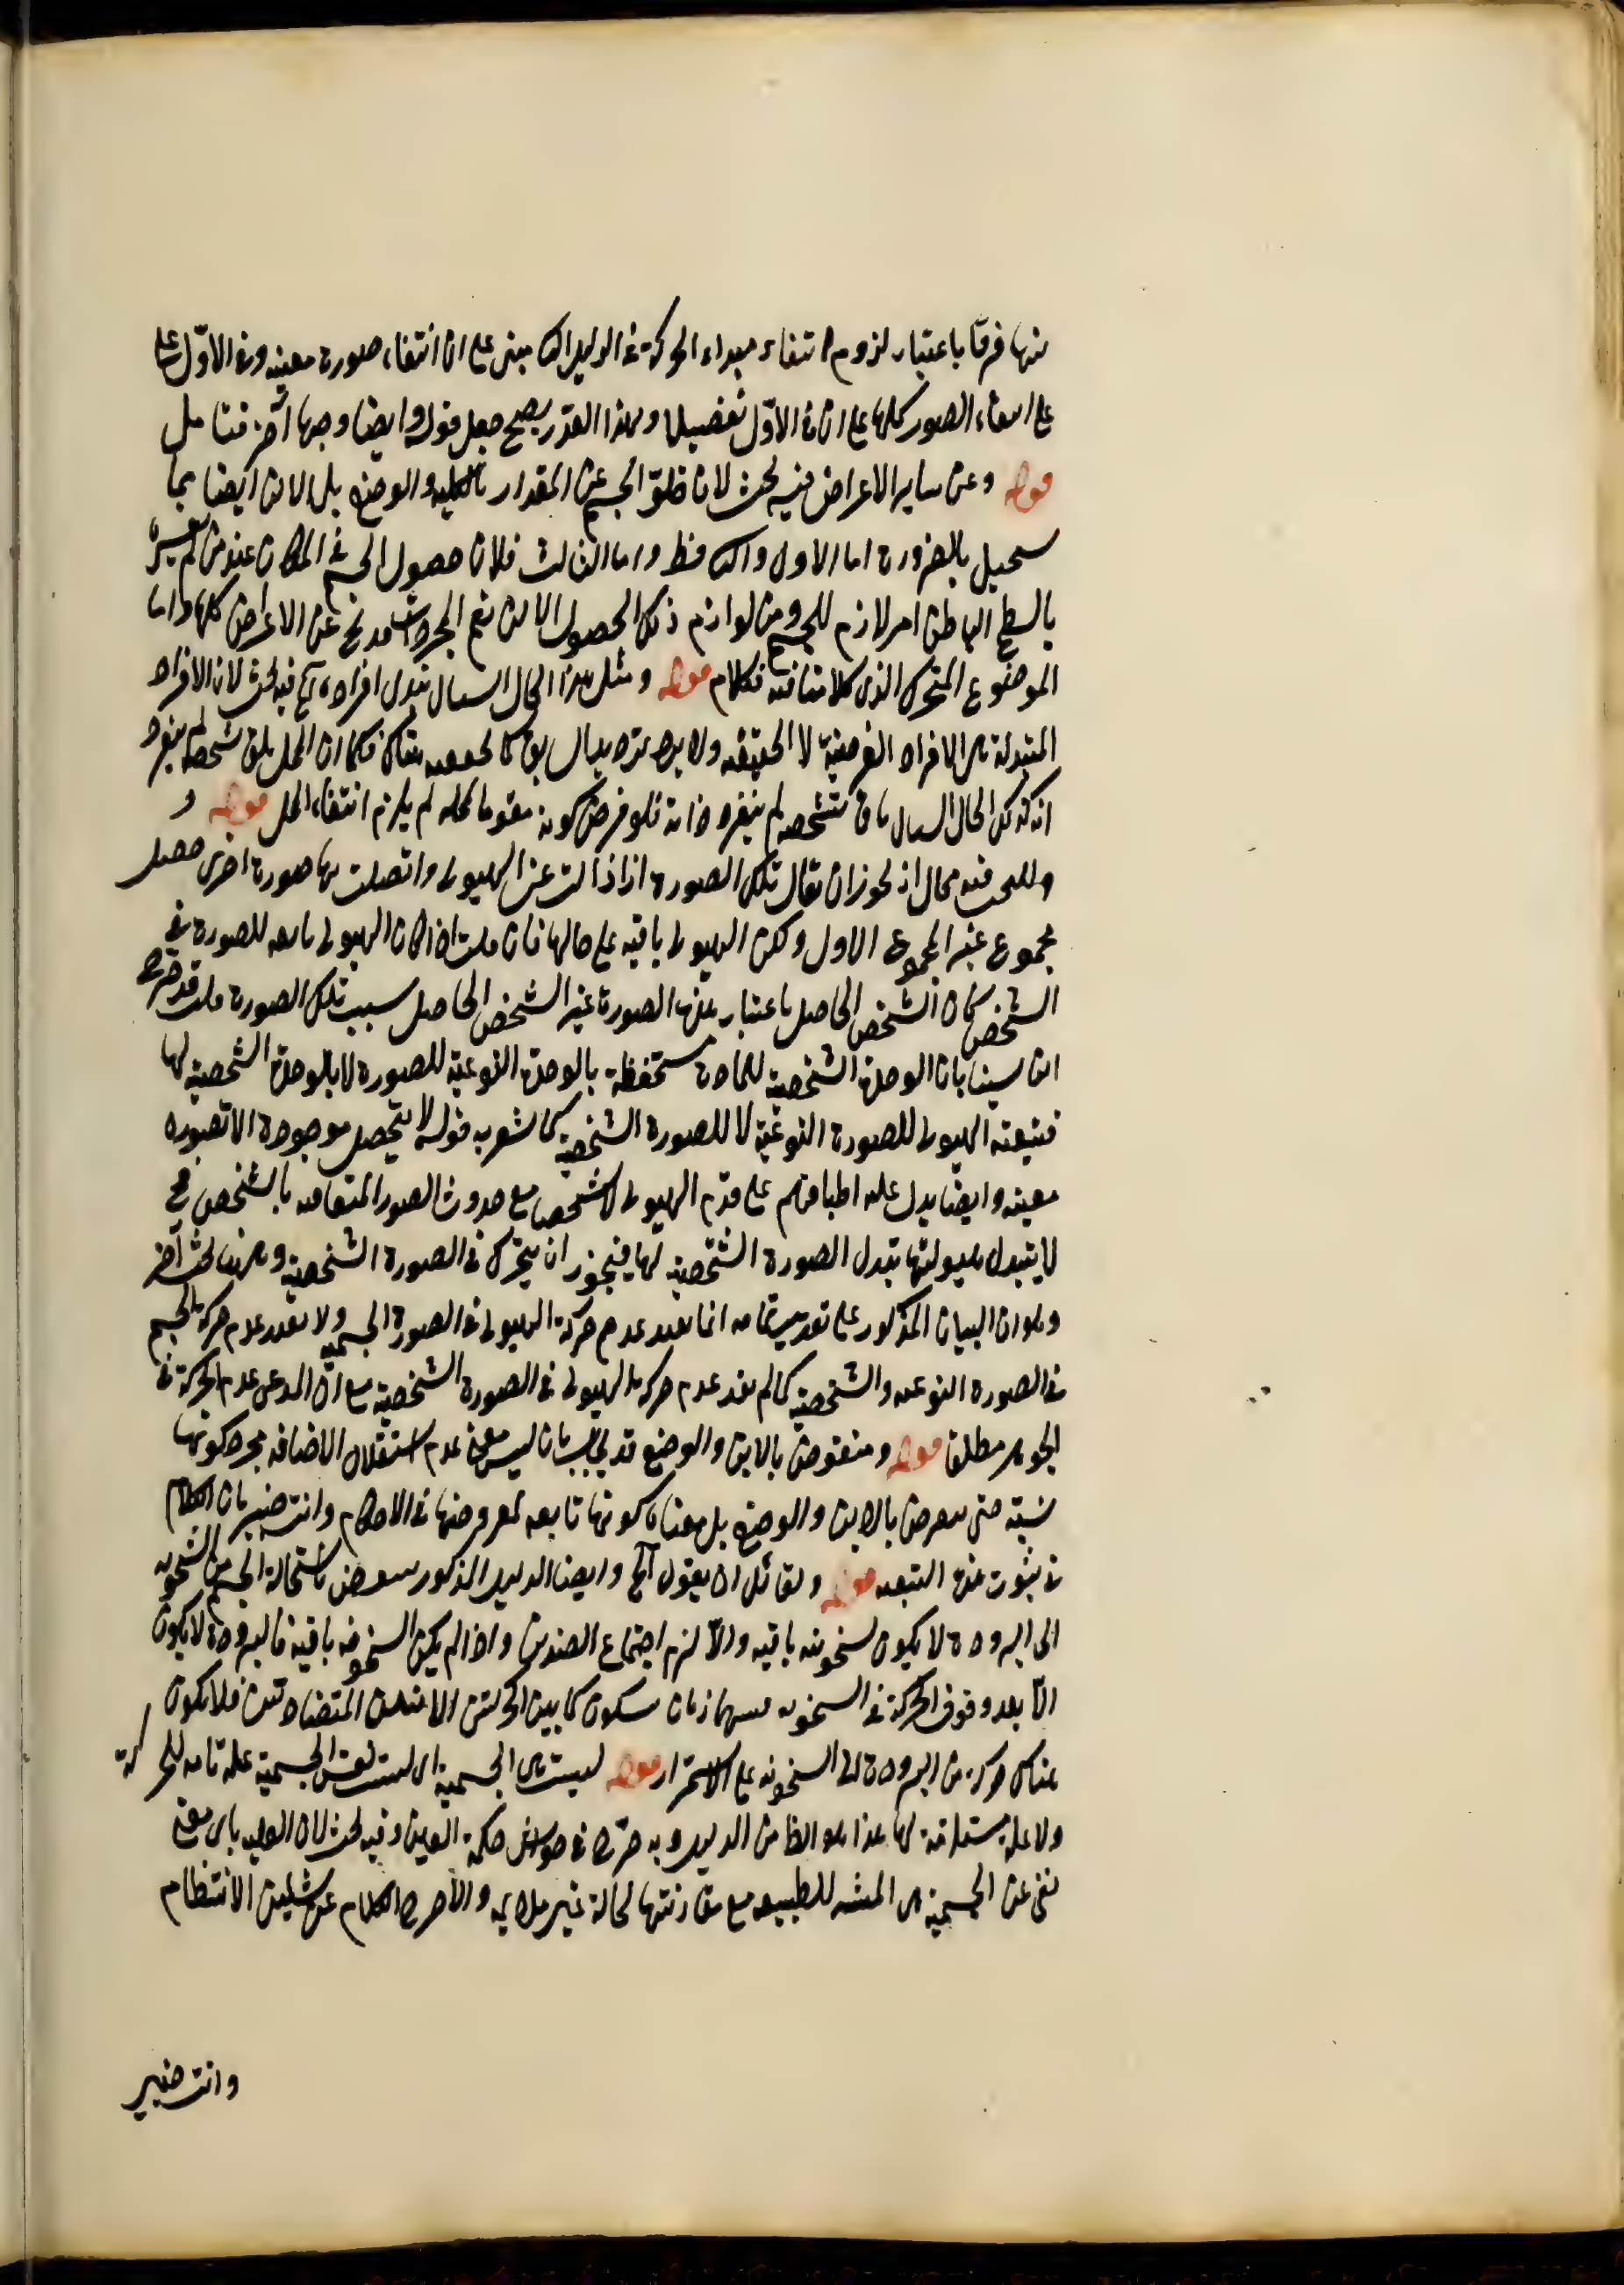 منها فرقا باعتبار لزوم انتفاء مبداء الحركة فى الدليل الثا مبنى على ان انتفاء صورة معينه وفى الاوّل على
على انتفاء الصور كلها على ان فى الاوّل تفصيلا وبهذا القدر يصح جعل قوله وايضا وجها آخر فتامل
قوله وعن ساير الاعراض فيه بحث لان خلوّ الجسم عن المقدار بالكليه والوضع بل الاين ايضا مما
يستحيل بالضرورة اما الاول والثا فظ واما الثالث فلان حصول الجسم فى المكان عند من لم يفسره
بالسطح الباطن امر لازم للجسم ومن لوازم ذلك الحصول الاين نعم المجردات قد تخ عن الاعراض كلها واما
الموضوع المتحرك الذى كلامنا فيه فكلام قوله ومثل هذا الحال السيال تبدل افراده آه فيه بحث لان الافراد
المتبدلة هى الافراد الفرضية لا الحقيقيه ولا فكما ان المحل باق بشخصه لم يتغير
ان كذلك الحال السيال باق بتشخصه لم يتغير ذاته فلو فرض كونه مقوما لمحله لم يلزم انتفاء المحل قوله و
وللبحث فيه مجال اذ يجوز ان يقال تلك الصورة اذا زالت عن الهيولى واتصلت بها صورة اخرى حصل
مجموع غير المجموع الاول ولكن الهيولى باقيه على حالها فان قلت اذا كان الهيولى تابعه للصورة فى
الشخص كان الشخص الحاصل باعتبار هذه الصورة غير الشخص الحاصل بسبب تلك الصورة قلت قد صرح
ابن سينا بان الوحدة الشخصية للمادة مستحفظة بالوحدة النوعية للصورة لا بالوحدة الشخصية لها
فتبعيته الهيولى للصورة النوعية لا للصورة الشخصية كما يشعر به قوله لا يتحصل موجودة الا بصورة
معينه وايضا يدل عليه اطباقهم على قدم الهيولى لا شخص مع حدوث الصور المتعاقبه بالشخص فح
لا يتبدل هيولتها بتبدل الصورة الشخصية لها فيجوز ان يتحرك فى الصورة الشخصية وههنا بحث آخر
وهو ان البيان المذكور على تقدير تمامه انما يفيد عدم حركة الهيولى فى الصورة الجسمية ولا يفيد عدم حركة الجسم
فى الصورة النوعيه والشخصية كما لم يفد عدم حركة الهيولى فى الصورة الشخصية مع ان المدعى عدم الحركة فى
الجوهر مطلقا قوله ومنقوض بالاين والوضع قد يجاب بان ليس معنى عدم استقلال الاضافه مجرد كونها
نسبة حتى ينقض بالاين والوضع بل معناه كونها تابعه لمعروضها فى الاحكام وانت خبير بان الكلام
فى ثبوت هذه التبعيه قوله ولقائل ان يقول آه وايضا الدليل المذكور ينقض باستحالة الجسم من السخونه
الى البرودة لا يكون سخونته باقيه والا لزم اجتماع الضدين واذا لم يكن السخونه باقية فالبرودة لا يكون
الا بعد وقوف الحركة فى السخونه فبينهما زمان سكون كما بين الحركتين الاينيتين المتضادتين فلا يكون
هناك حركة من البرودة الى السخونه على الاستمرار قوله ليست هى الجسمية اى ليست نفس الجسمية علة تامه للحركة
ولا علة مستلزمة لها هذا هو الظا من الدليل وبه صرّح فى حواشى حكمة العين وفيه بحث لان الدليل باى معنى
نفى عن الجسمية هى المثبته للطبيعه مع مقارنتها لحالة غير ملايمه والا خرج الكلام عن الانتظام
وانت خبير